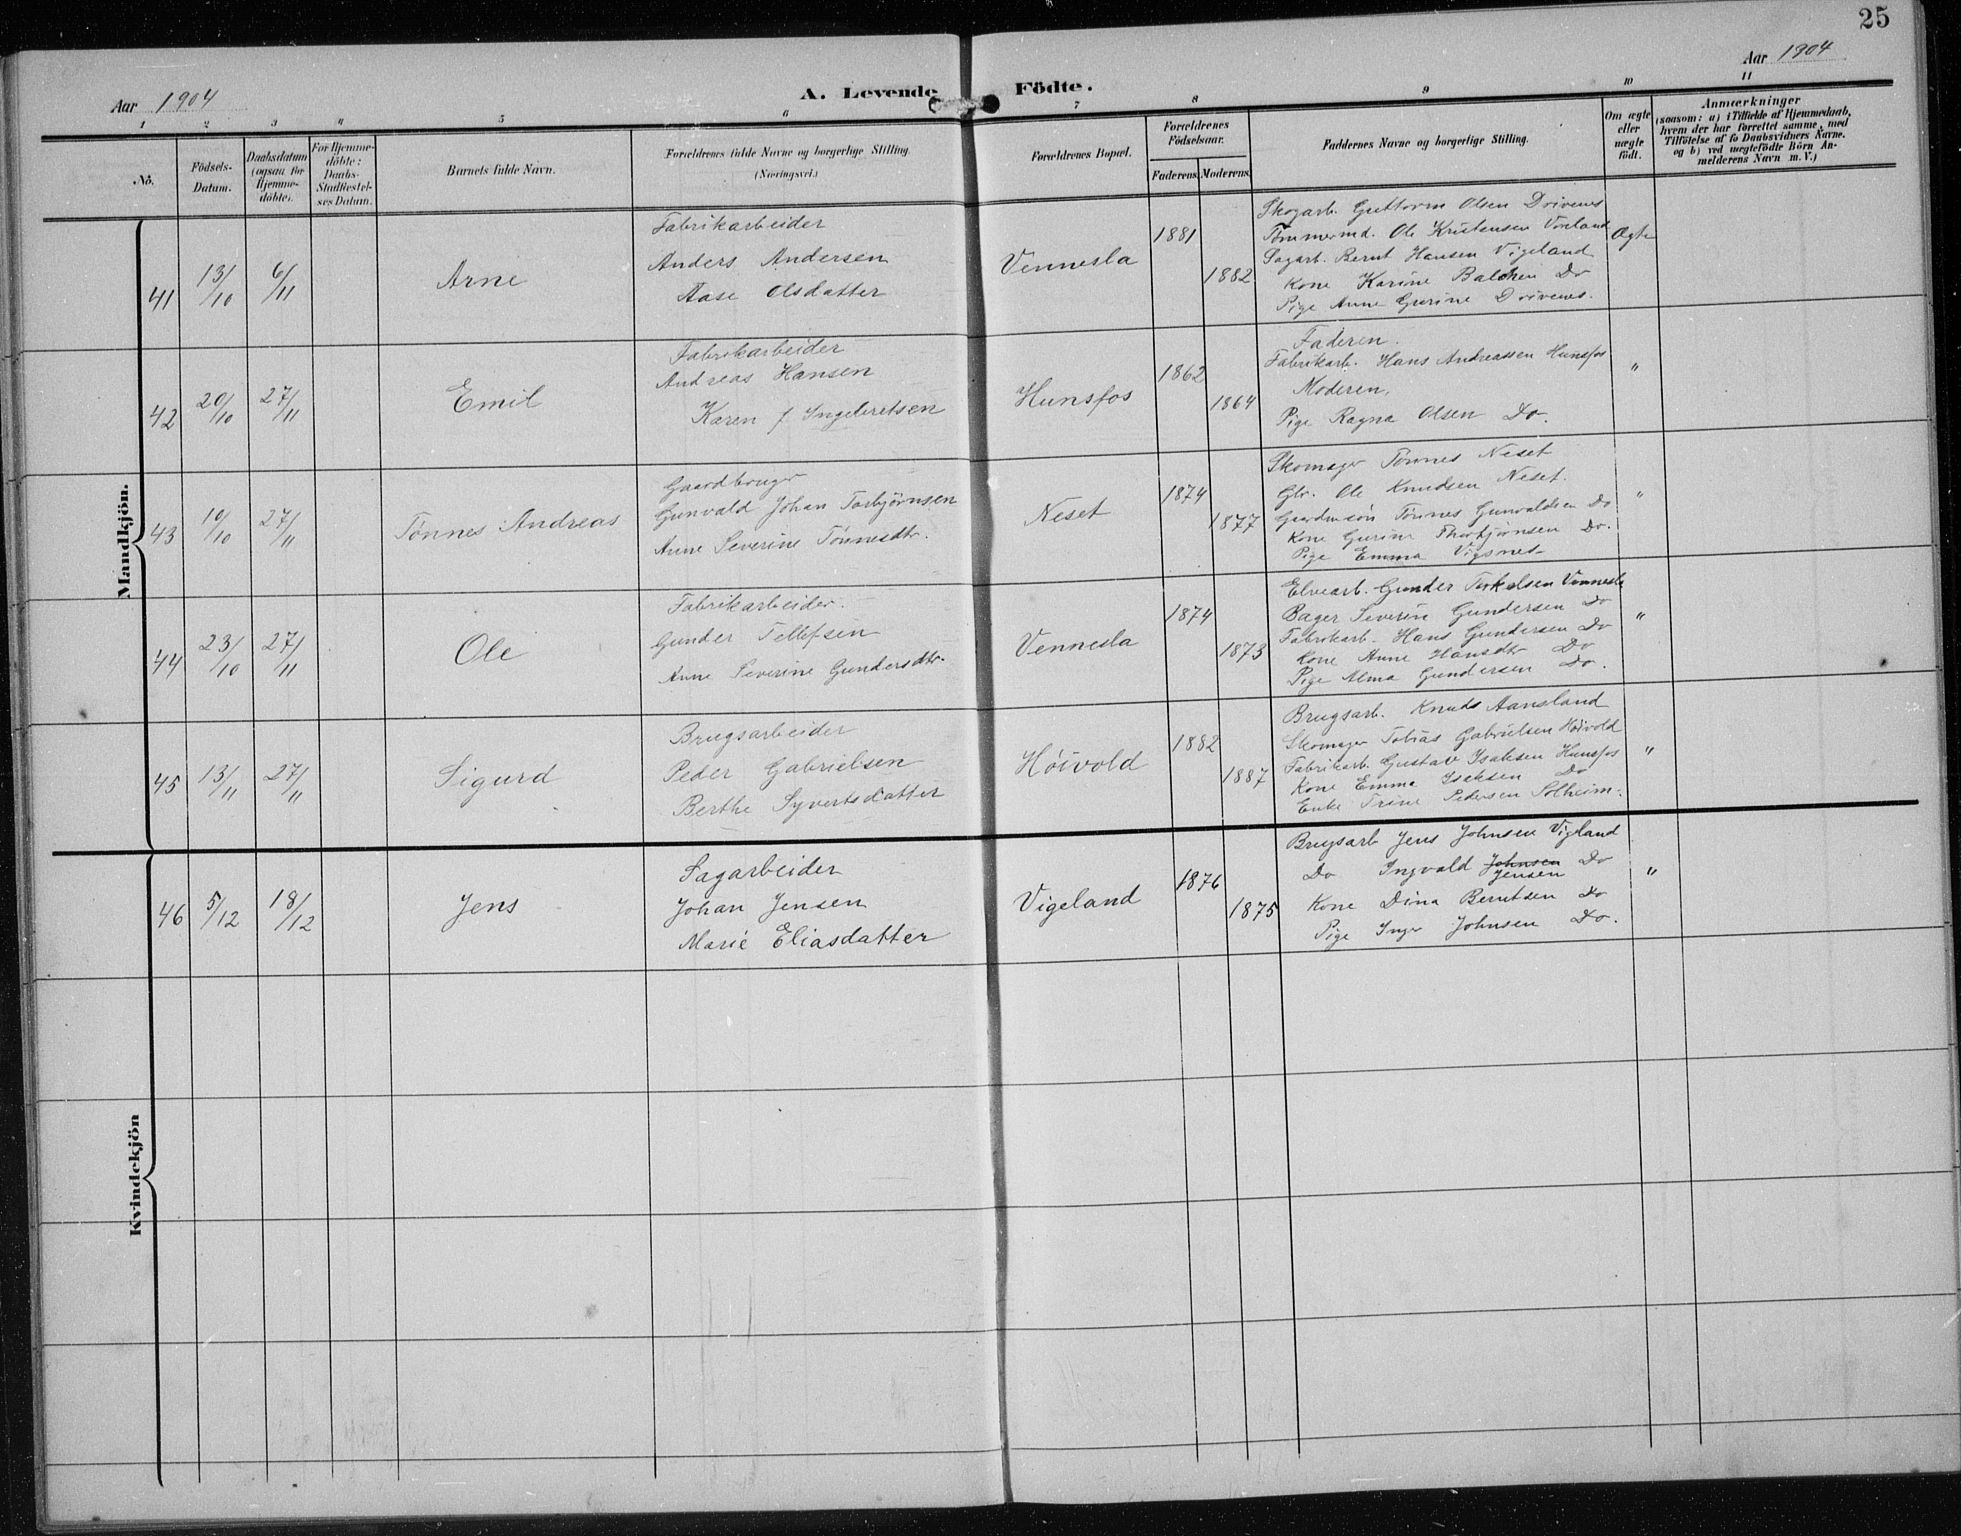 25
Aar 1904
A. Levende Födte.
Aar 1904
1 2 3 4 5 6 7 8 9 10 11
No.
Födsels-Datum.
Daabsdatum (ogsaa for Hjemme-döbte).
For Hjemme-döbte: Daabs-Stadfæstel-ses Datum.
Barnets fulde Navn.
Forældrenes fulde Navne og borgerlige Stilling.
(Næringsvei.)
Forældrenes Bopæl.
Forældrenes Födselsaar.
Faderens. Moderens.
Faddernes Navne og borgerlige Stilling.
Om ægte eller uægte födt.
Anmærkninger
(saasom: a) i Tilfælde af Hjemmedaab,
hvem der har forrettet samme, med
Tilföielse af to Daabsvidners Navne.
og b) ved uægtefödte Börn An-
melderens Navn m. V.)
Mandkjön.
41 13/10 6/11 Arne
Fabrikarbeider
Anders Andersen
Aase Olsdatter
Vennesla 1881 1882
Skogarb. Guttorm Olsen Drivenes
Tömmermd. Ole Kristensen Vonland
Sagarb. Bernt Hansen Vigeland
Kone Karine Balchen Do
Pige Anne Gurine Drivenes.
Ægte
42 20/10 27/11 Emil
Fabrikarbeider
Andreas Hansen
Karen f Ingebretsen
Hunsfos 1862 1864
Faderen.
Fabrikarb. Hans Andreassen Hunsfos
Moderen.
Pige Ragna Olsen Do.
"
43 10/10 27/11 Tønnes Andreas
Gaardbruger
Gunvald Johan Torbjørnsen
Anne Severine Tønnesdtr.
Neset 1874 1877
Skomager Tønnes Neset
Gbr. Ole Knudsen Neset.
Gaardmsön Tönnes Gunvaldsen Do
Kone Gurine Thorbjørnsen Do.
Pige Emma Vigsnes
"
44 23/10 27/11 Ole
Fabrikarbeider.
Gunder Tellefsen
Anne Severine Gundersdtr.
Vennesla 1874 1873
Elvearb. Gunder Terkelsen Vennesla
Bager Severin Gundersen Do
Fabrikarb. Hans Gundersen Do
Kone Anne Hansdtr Do
Pige Alma Gundersen Do.
"
45 13/11 27/11 Sigurd
Brugsarbeider
Peder Gabrielsen
Berthe Syvertsdatter
Høivold 1882 1887
Brugsarb. Knuds Aansland
Skomager Tobias Gabrielsen Høivold
Fabrikarb. Gustav Isaksen Hunsfos
Kone Emma Isaksen Do
Enke Trine Pedersen Solheim.
"
Kvindekjön
46 5/12 18/12 Jens
Sagarbeider
Johan Jensen
Marie Eliasdatter
Vigeland 1876 1875
Brugsarb Jens Johnsen Vigeland
Do Ingvald Johnsen Do
Jensen
Kone Dina Berntsen Do
Pige Inger Johnsen Do.
"